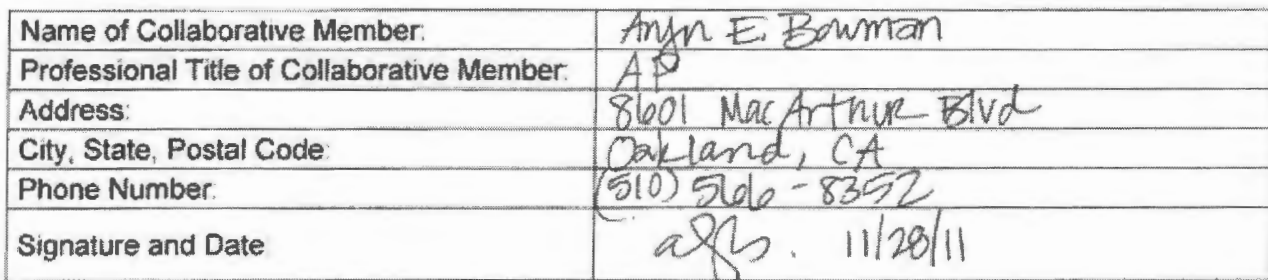 Name of Collaborative Member: Aryn E. Bowman
Professional Title of Collaborative Member: AP
Address: 8601 MacArthur Blvd
City, State, Postal Code: Oakland, CA
Phone Number: (510) 566-8352
Signature and Date 11/28/11